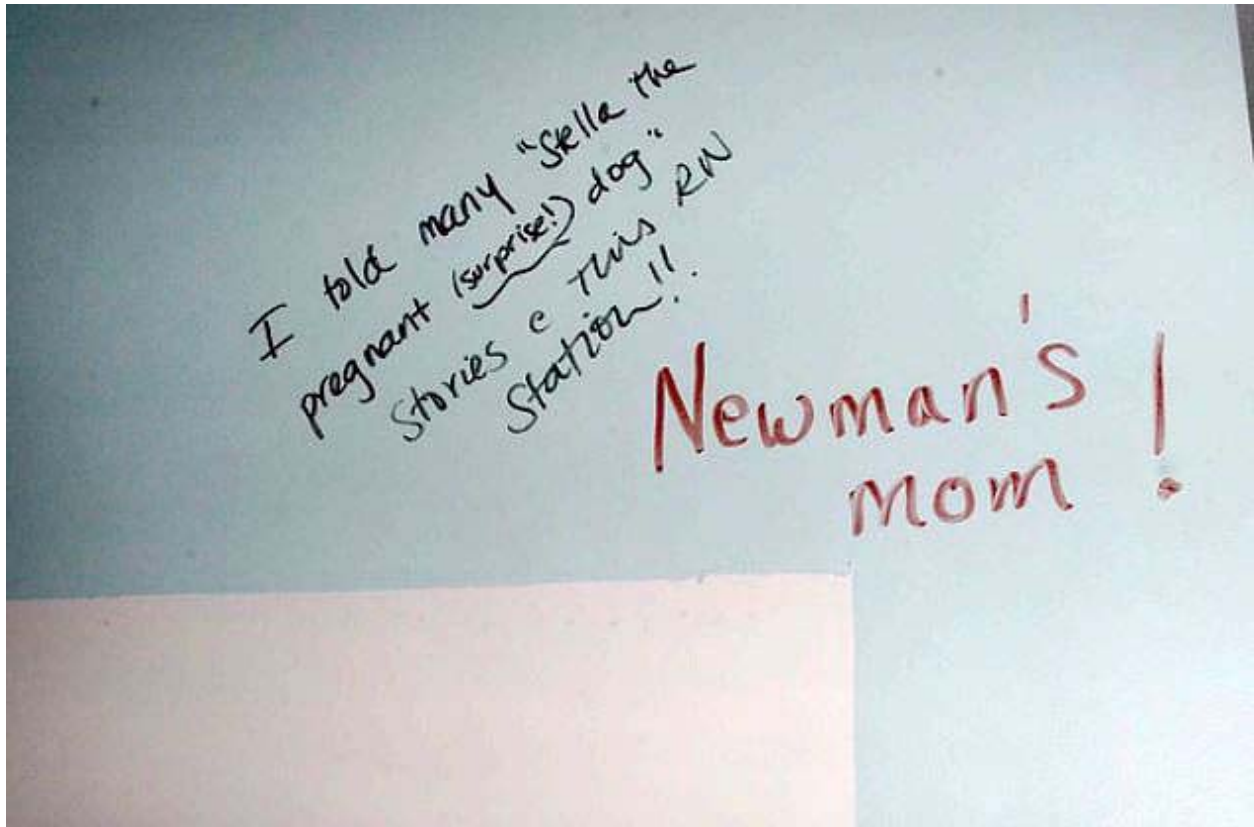 I told many "Stella the
pregnant (surprise!) dog"
stories c this RN
Station!!
Newman's
mom!